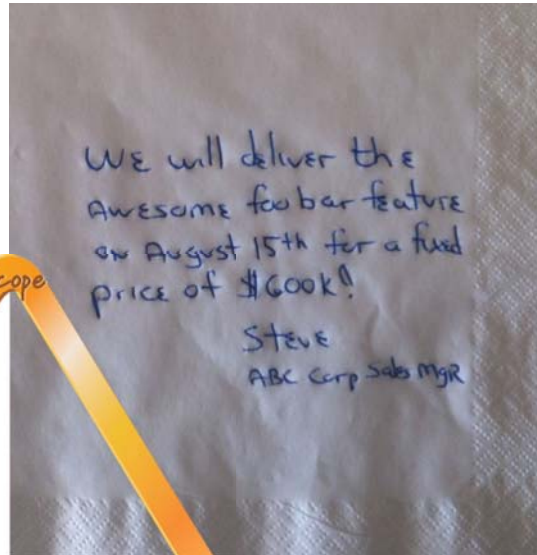 We will deliver the
Awesome foo bar feature
on August 15th for a fixed
price of $600k!
Steve
ABC Corp Sales MgR
cope